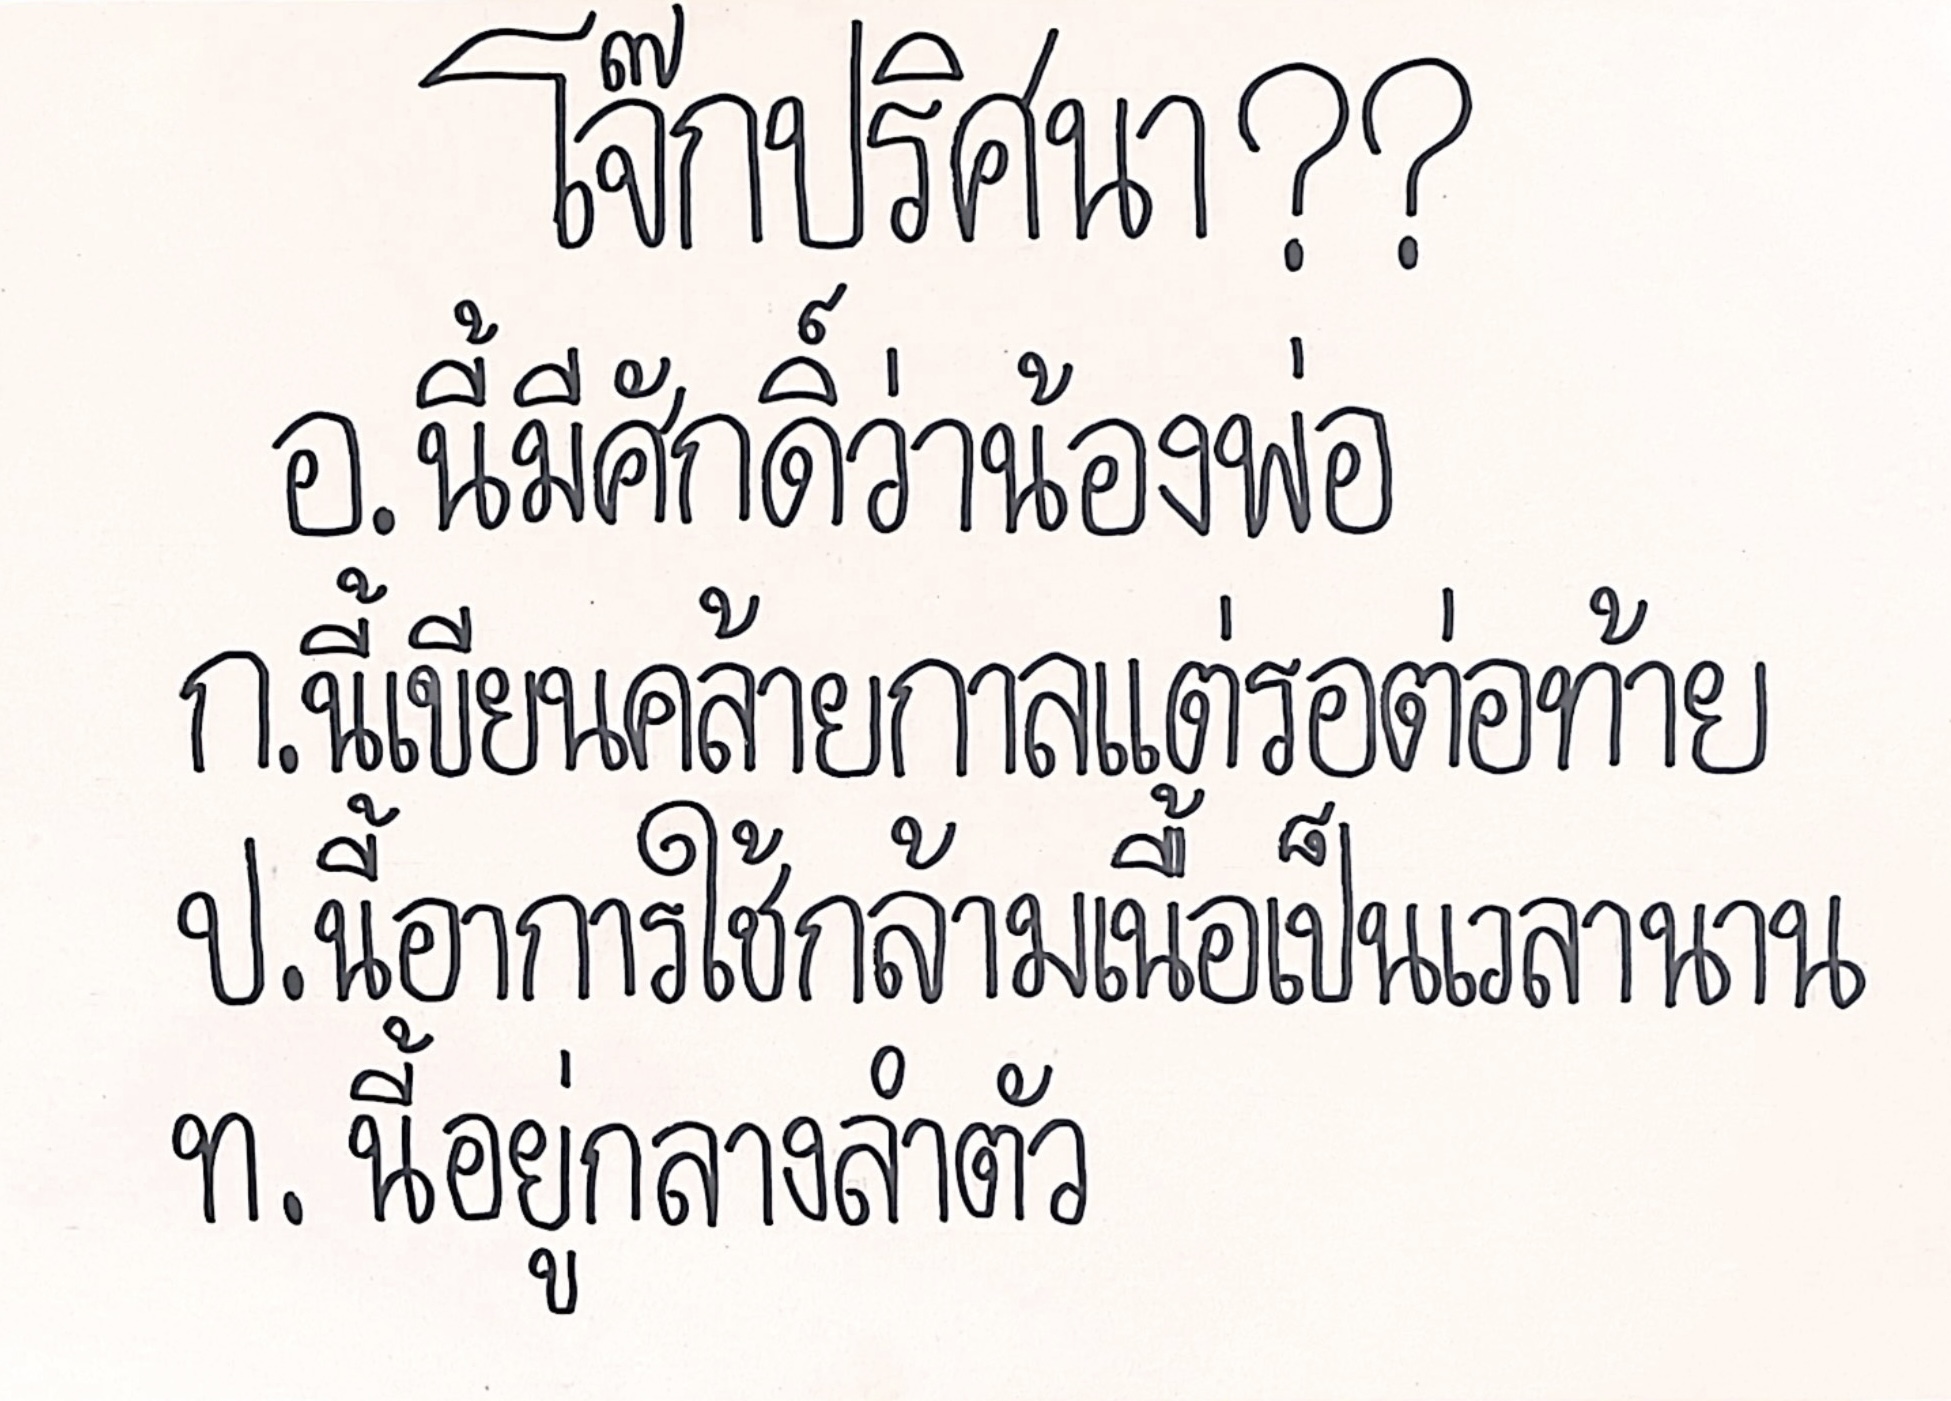 โจ๊กปริศนา ??
อ. นี้มีศักดิ์ว่าน้องพ่อ
ก. นี้เขียนคล้ายกาลแต่รอต่อท้าย
ป. นี้อาการใช้กล้ามเนื้อเป็นเวลานาน
ท. นี้อยู่กลางลำตัว